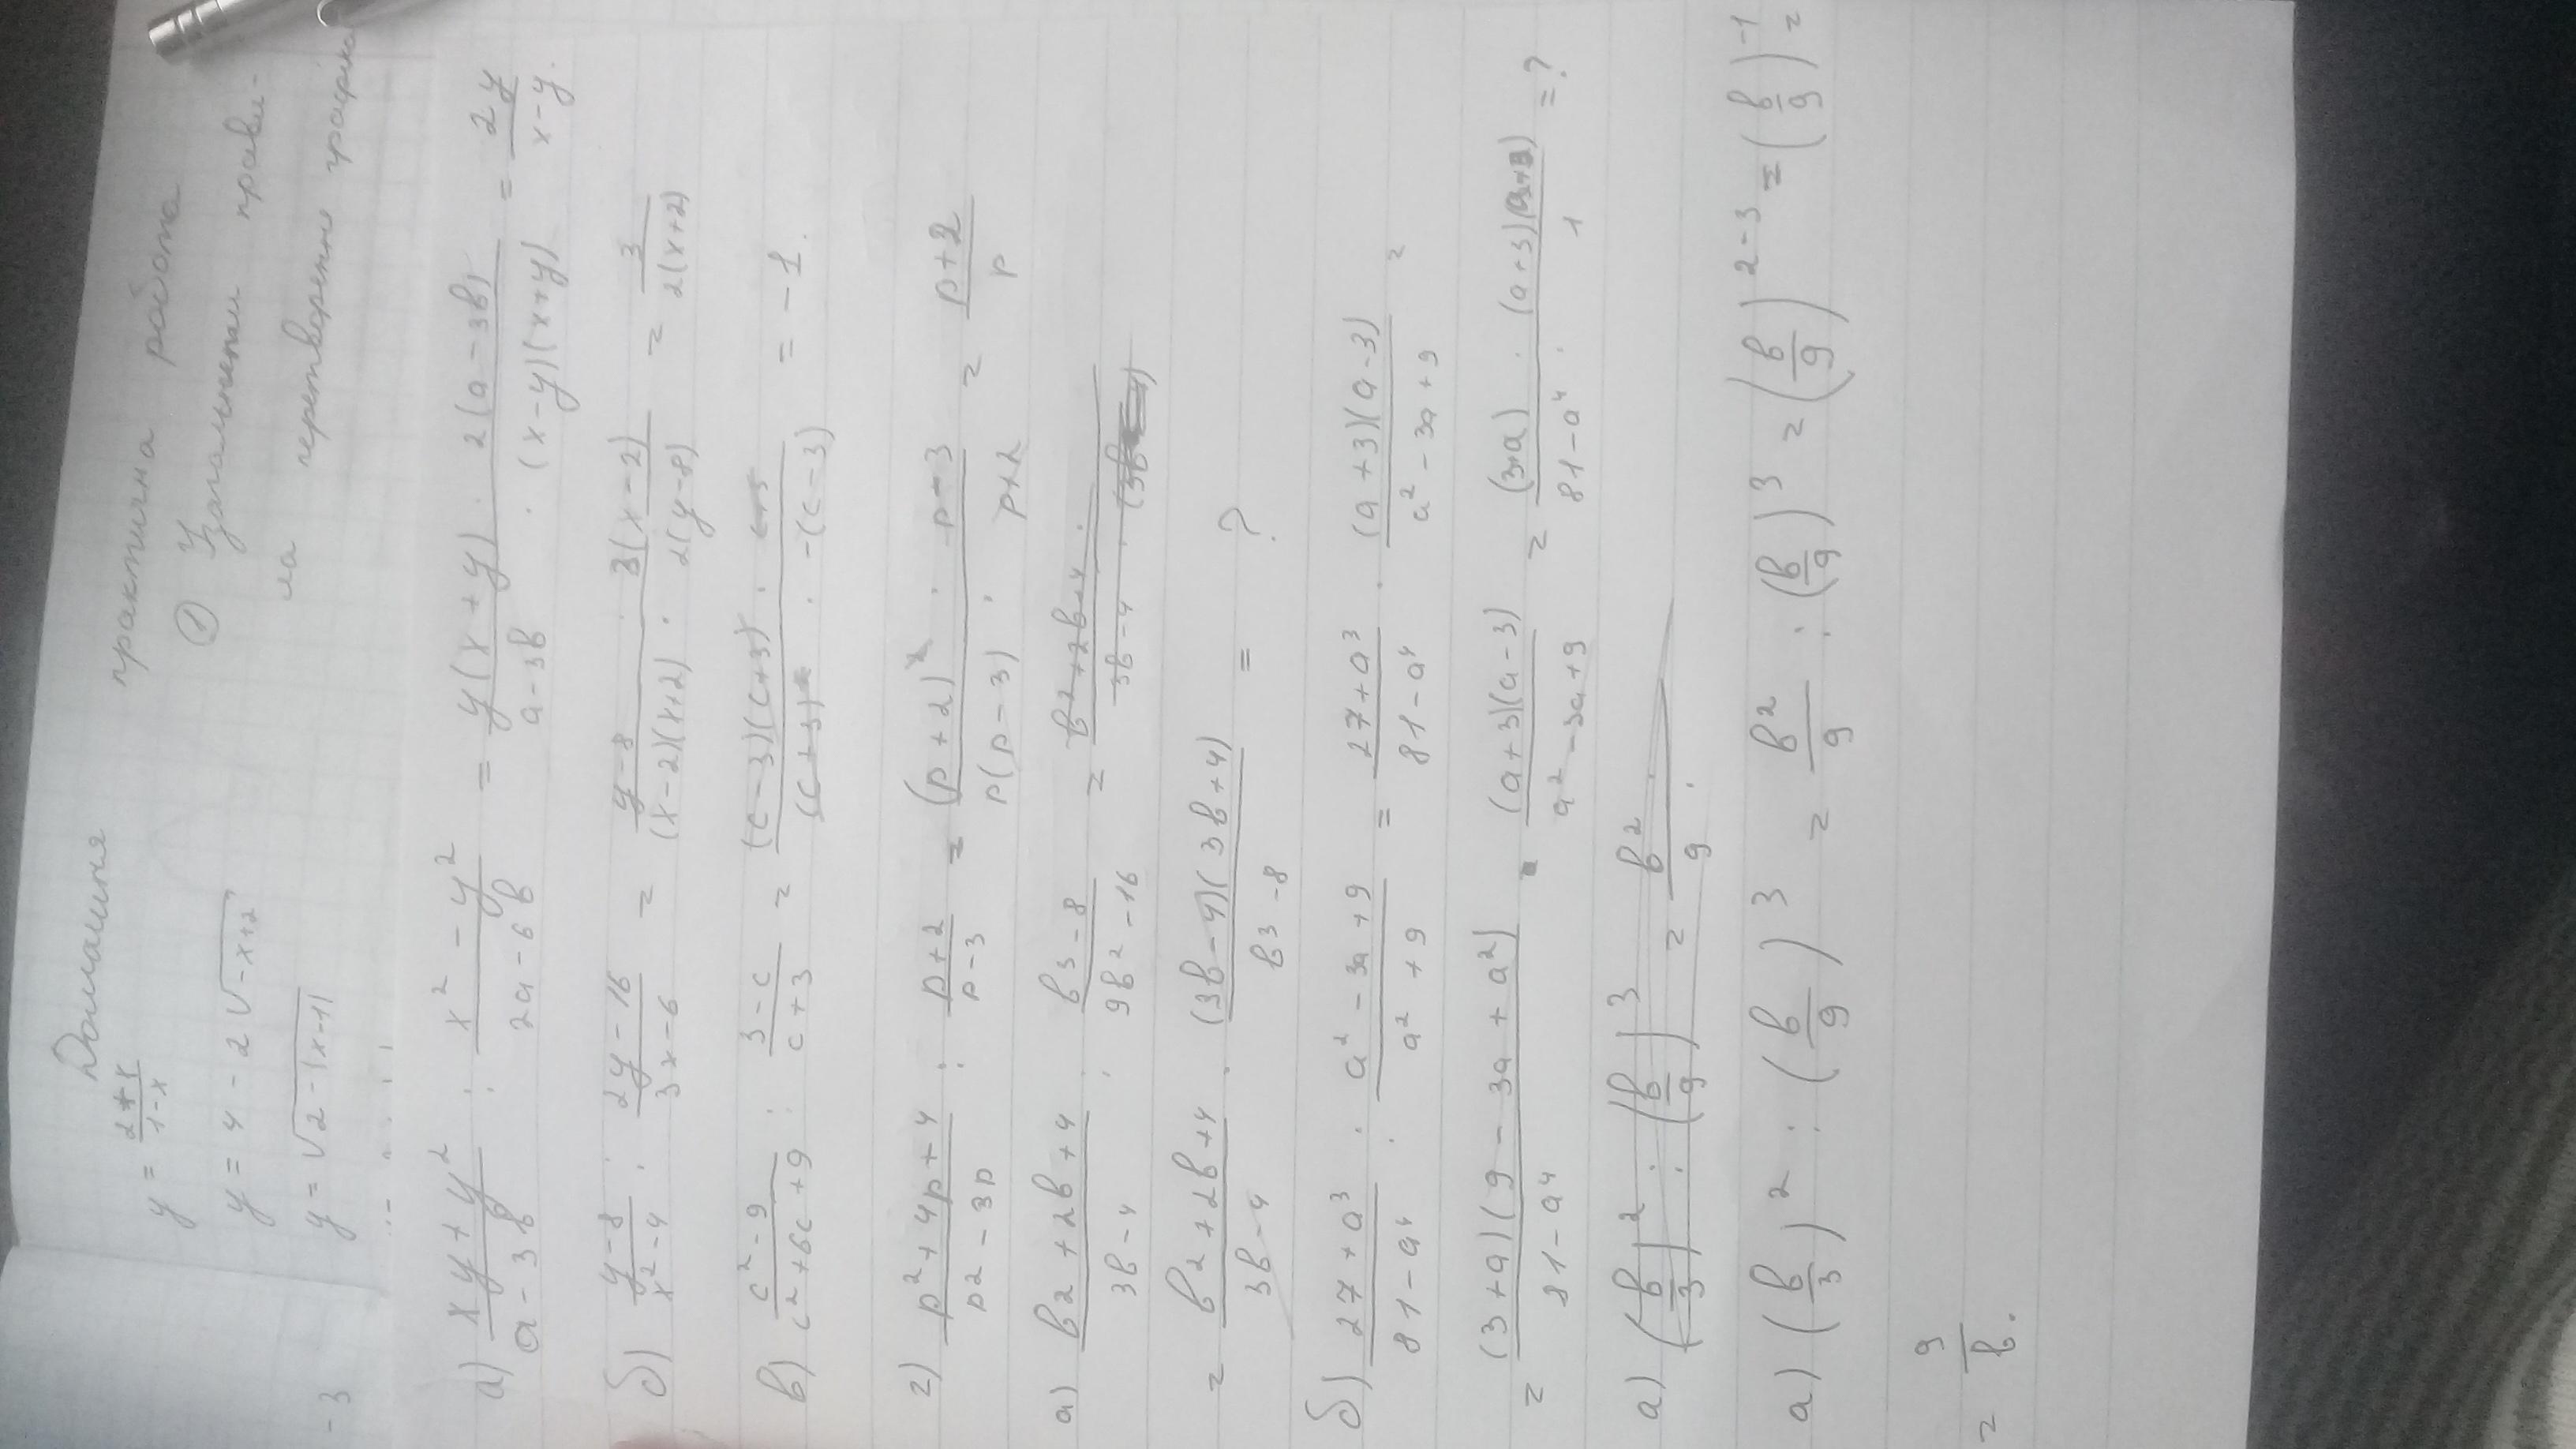 Домашня
практична робота
y = 2+x/1-x
① Узагальнити прави-
y = 4 - 2√-x+2
ла перетворення графіка
-3 y = √2-|x-1|
а) xy+y²/a-3в : x²-y²/2a-6в = y(x+y)/a-3в · 2(a-3в)/(x-y)(x+y) = 2y/x-y.
б) y-8/x²-4 : 2y-16/3x-6 = y-8/(x-2)(x+2) · 3(x-2)/2(y-8) = 3/2(x+2)
в) c²-9/c²+6c+9 : 3-c/c+3 = (c-3)(c+3)/(c+3)² · c+3/-(c-3) = -1.
г) p²+4p+4/p²-3p : p+2/p-3 = (p+2)²/p(p-3) · p-3/p+2 = p+2/p
а) в²+2в+4/3в-4 : в³-8/9в²-16 = в²+2в+4/3в-4 ·
= в²+2в+4/3в-4 · (3в-4)(3в+4)/в³-8 = ?
б) 27+a³/81-a⁴ : a²-3a+9/a²+9 = 27+a³/81-a⁴ · (a+3)(a-3)/a²-3a+9 =
= (3+a)(9-3a+a²)/81-a⁴ · (a+3)(a-3)/a²-3a+9 = (3+a)/81-a⁴ · (a+3)/1 = ?
а) (в/3)² : (в/9)³ = в²/9 :
а) (в/3)² : (в/9)³ = в²/9 : (в/9)³ = (в/9)²⁻³ = (в/9)⁻¹ =
= 9/в.